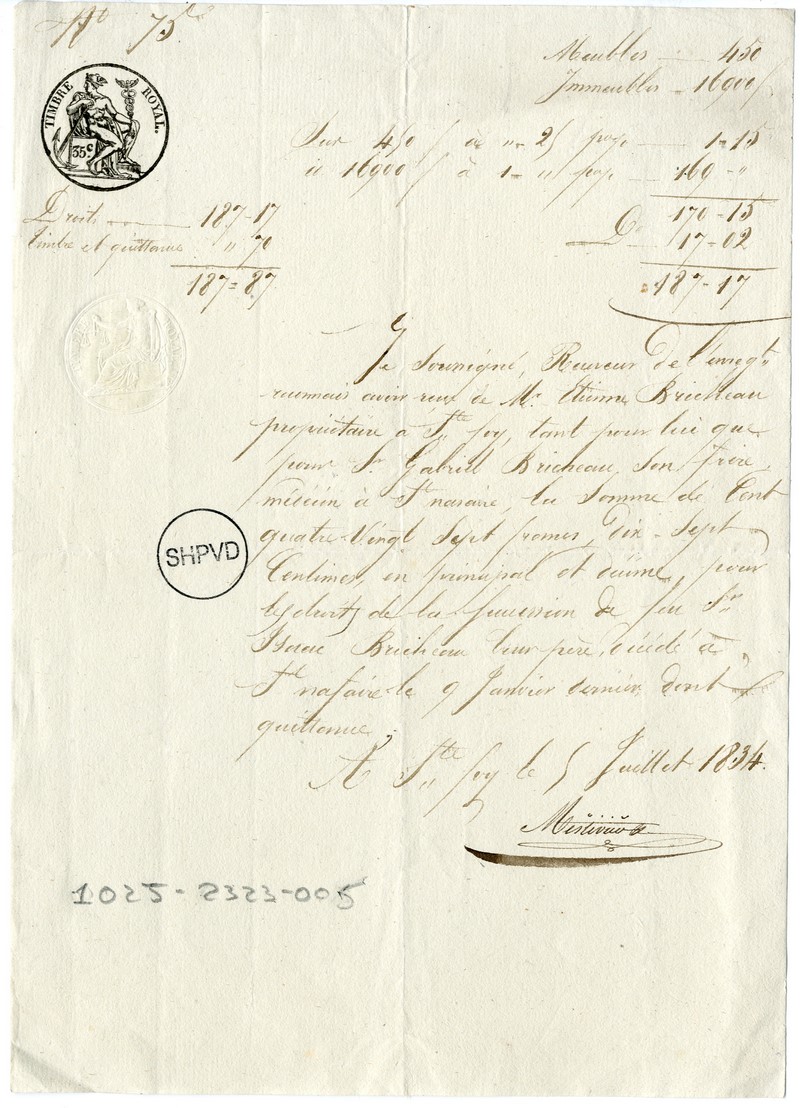 N° 75
TIMBRE ROYAL.
35 c
Meubles 450
Immeubles = 16900 f
Sur 450 f à " = 25 paye 1=15
" 16900 f à 1 = " f paye 169 - "
170 - 15
De 17 - 02
187 - 17
Droits 187 - 17
timbre et quittance " 70
187 = 87
Je Soussigné, Receveur de l'enregt
reconnais avoir reçu de Mr. Etienne Bricheau
propriétaire à Ste foy, tant pour lui que
pour Sr Gabriel Bricheau, son frère
médecin à St nasaire, la Somme de Cent
quatre-Vingt Sept francs, dix-Sept
Centimes, en principal et décime, pour
les droits de la succession de feu Sr
Isaac Bricheau leur père, décédé à
St nasaire le 9 Janvier dernier, dont
quittance.
A Ste foy le 5 Juillet 1834.
SHPVD
1025-2323-005